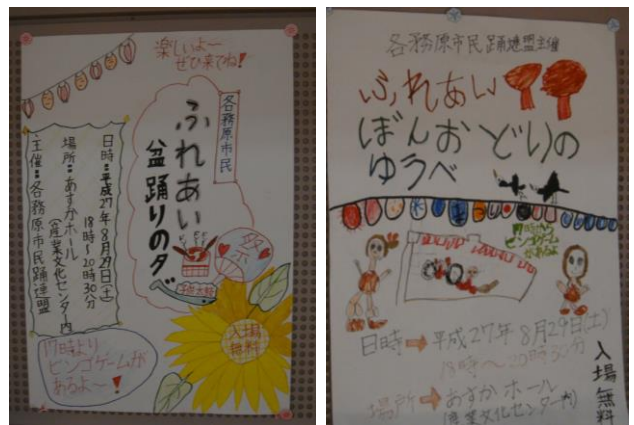 楽しいよー
ぜひ来てね!
各務原市民
ふれあい
盆踊りの夕べ
祭
日時:平成27年8月29日(土)
18時~20時30分
場所:あすかホール
(産業文化センター内)
主催:各務原市民踊連盟
入場
無料
17時より
ビンゴゲームが
あるよ~!
各務原市民踊連盟主催
ふれあい
ぼんおどりの
ゆうべ
17時から
ビンゴゲーム
があるよ
日時→平成27年8月29日(土)
18時~20時30分
場所→あすかホール
(産業文化センター内)
入場無料